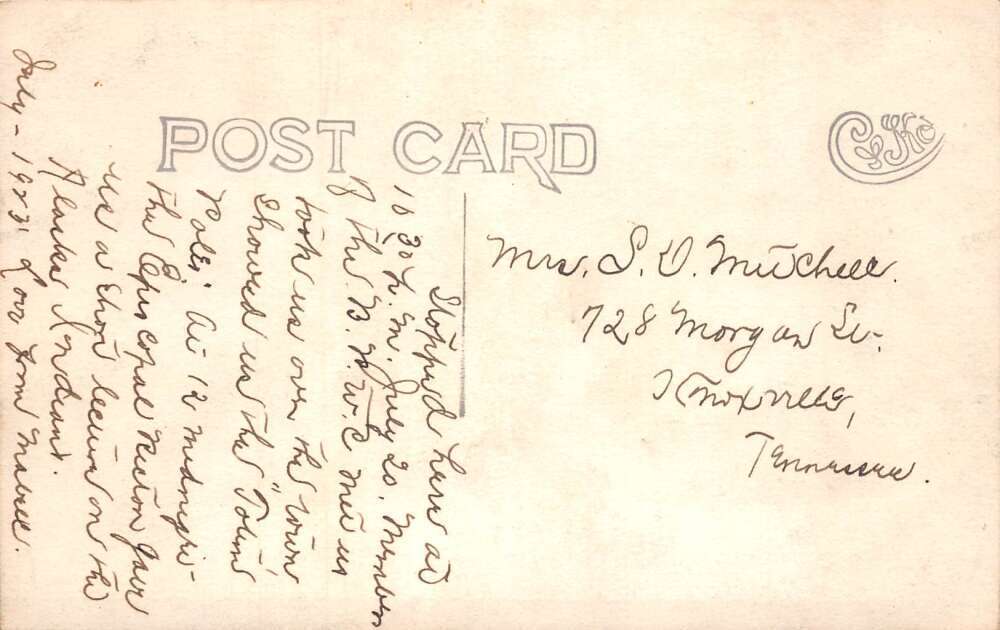 POST CARD
CKC
Stopped here at
10 30 P.M. July 20. Members
of the B.P.W.C met us
took us over the town
showed us the "Totem
Poles" At 12 midnight
the Episcopal Rector gave
us a short lecture on the
Alaska Indians.
July - 1923. Love from Mabell.
Mrs. S. D. Mitchell.
728 Morgan St.
Knoxville,
Tennessee.